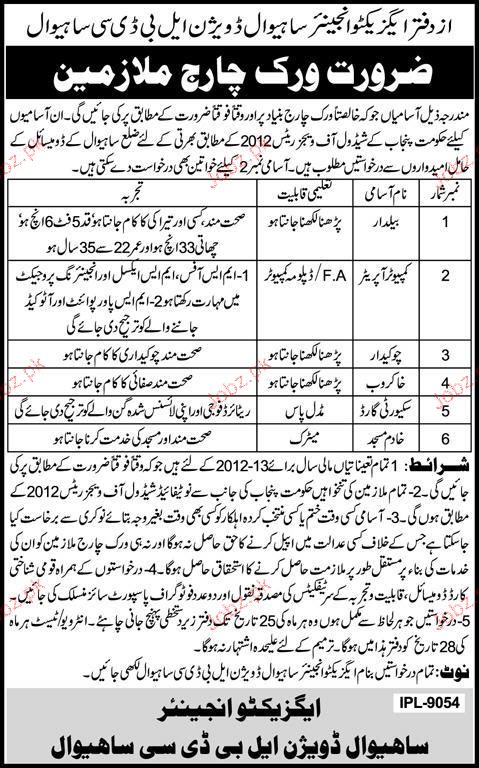 از دفتر ایگزیکٹو انجینئر ساہیوال ڈویژن ایل بی ڈی سی ساہیوال
ضرورت ورک چارج ملازمین
مندرجہ ذیل آسامیاں جو کہ خالصتاً ورک چارج بنیاد پر اور وقتاً فوقتاً ضرورت کے مطابق پر کی جائیں گی۔ ان آسامیوں
کیلئے حکومت پنجاب کے شیڈول آف ویجز ریٹس 2012 کے مطابق بھرتی کے لئے ضلع ساہیوال کے ڈومیسائل کے
حامل امیدواروں سے درخواستیں مطلوب ہیں۔ آسامی نمبر 2 کیلئے خواتین بھی درخواست دے سکتی ہیں۔
نمبر شمار نام آسامی تعلیمی قابلیت تجربہ
1 بیلدار پڑھنا لکھنا جانتا ہو صحت مند، کسی اور تیرا کی کا کام جانتا ہو قد 5 فٹ 6 انچ ہو
چھاتی 33 انچ ہو اور عمر 22 سے 35 سال ہو
2 کمپیوٹر آپریٹر F.A/ ڈپلومہ کمپیوٹر 1- ایم ایس آفس، ایم ایس ایکسل اور انجینئرنگ پروجیکٹ
میں مہارت رکھتا ہو 2- ایم ایس پاور پوائنٹ اور آٹو کیڈ
جاننے والے کو ترجیح دی جائے گی
3 چوکیدار پڑھنا لکھنا جانتا ہو صحت مند چوکیداری کا کام جانتا ہو
4 خاکروب پڑھنا لکھنا جانتا ہو صحت مند صفائی کا کام جانتا ہو
5 سکیورٹی گارڈ مڈل پاس ریٹائرڈ فوجی اور اپنی لائسنس شدہ گن والے کو ترجیح دی جائے گی
6 خادم مسجد میٹرک صحت مند اور مسجد کی خدمت کرنا جانتا ہو
شرائط: 1 تمام تعیناتیاں مالی سال برائے 13-2012 کے لئے ہیں جو کہ وقتاً فوقتاً ضرورت کے مطابق پر کی
جائیں گی 2- تمام ملازمین کی تنخواہیں حکومت پنجاب کی جانب سے نوٹیفائیڈ شیڈول آف ویجز ریٹس 2012 کے
مطابق ہوں گی۔ 3- آسامی کسی وقت ختم یا کسی منتخب کردہ اہلکار کو کسی بھی وقت بغیر وجہ بتائے نوکری سے برخاست کیا
جا سکتا ہے جس کے خلاف کسی عدالت میں اپیل کرنے کا حق حاصل نہ ہو گا اور نہ ہی ورک چارج ملازمین کو ان کی
خدمات کی بناء پر مستقل طور پر ملازمت حاصل کرنے کا استحقاق حاصل ہو گا۔ 4- درخواستوں کے ہمراہ قومی شناختی
کارڈ ڈومیسائل، قابلیت و تجربہ کے سرٹیفکیٹس کی مصدقہ نقول اور دو عدد فوٹو گراف پاسپورٹ سائز منسلک کی جائیں۔
5- درخواستیں جو ہر لحاظ سے مکمل ہوں وہ ہر ماہ کی 25 تاریخ تک دفتر زیر دستخطی پہنچ جانی چاہئے۔ انٹرویو/ٹیسٹ ہر ماہ کی
28 تاریخ کو دفتر ہذا میں ہو گا۔ ترمیم کے لئے علیحدہ اشتہار نہ ہو گا۔
نوٹ: تمام درخواستیں بنام ایگزیکٹو انجینئر ساہیوال ڈویژن ایل بی ڈی سی ساہیوال لکھی جائیں۔
IPL-9054
ایگزیکٹو انجینئر
ساہیوال ڈویژن ایل بی ڈی سی ساہیوال
Jobz.pk